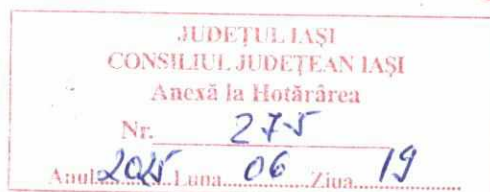 JUDEȚUL IAȘI
CONSILIUL JUDEȚEAN IAȘI
Anexă la Hotărârea
Nr. 275
Anul 2025 Luna 06 Ziua 19